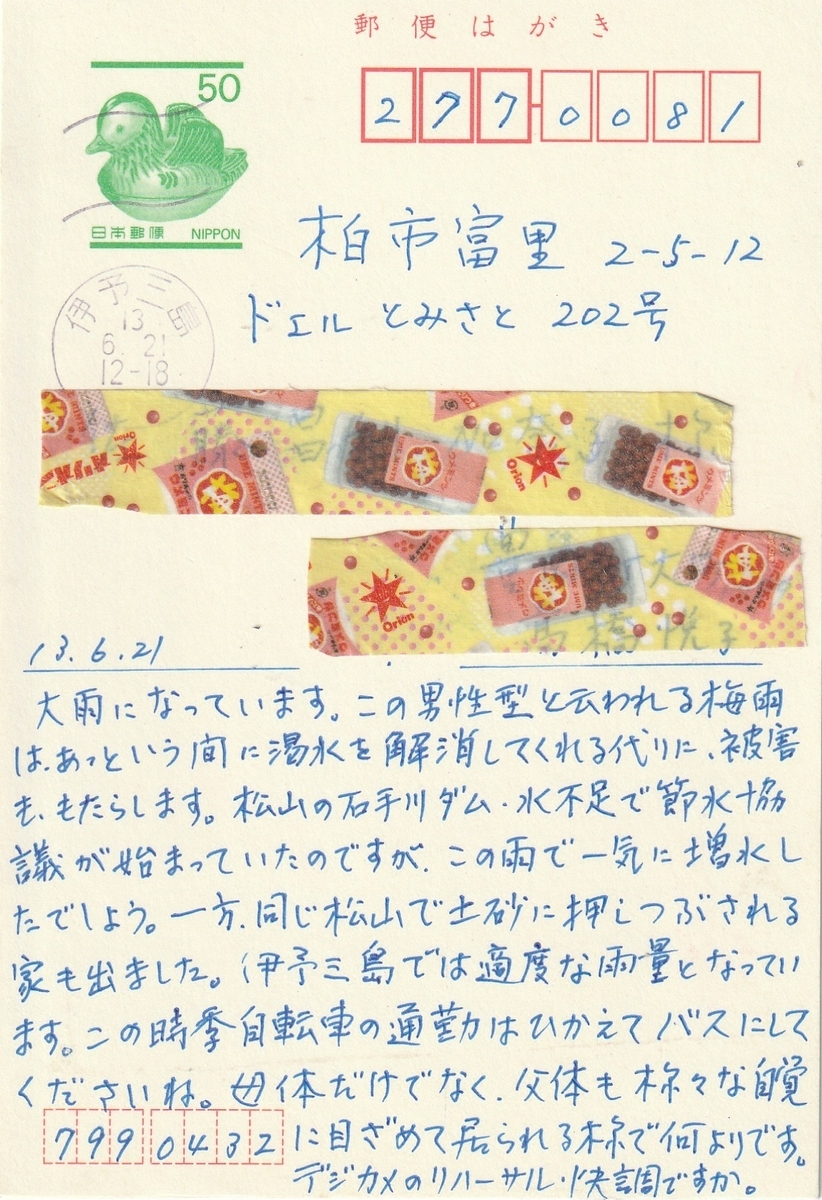 郵便はがき
50
日本郵便 NIPPON
2770081
伊予三島
13
6.21
12-18
柏市富里 2-5-12
ドエルとみさと 202号
Orion
Orion
Orion
高橋悦子
13.6.21
大雨になっています。この男性型と云われる梅雨
は、あっという間に渇水を解消してくれる代りに、被害
も、もたらします。松山の石手川ダム・水不足で節水協
議が始まっていたのですが、この雨で一気に増水し
たでしょう。一方、同じ松山で土砂に押しつぶされる
家も出ました。伊予三島では適度な雨量となってい
ます。この時季自転車の通勤はひかえてバスにして
くださいね。母体だけでなく、父体も様々な自覚
に目ざめて居られる様で何よりです。
デジカメのリハーサル・快調ですか。
7990432